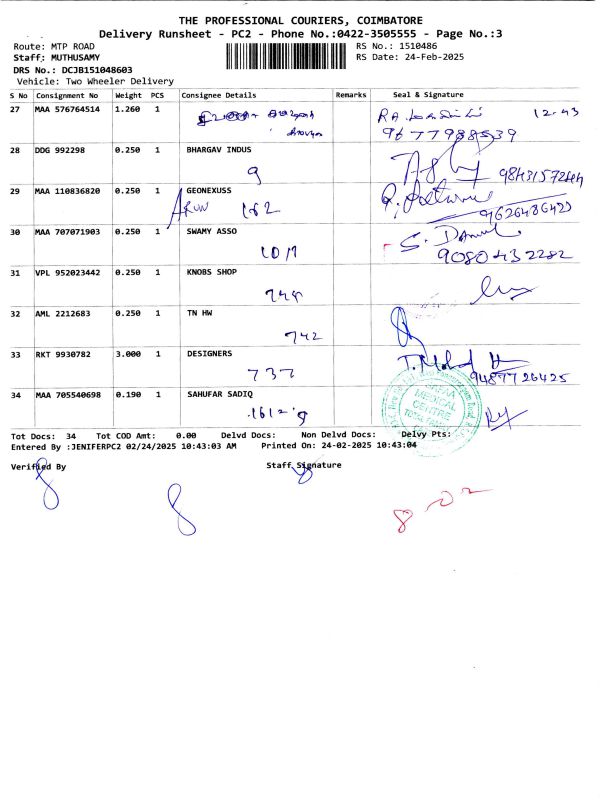 THE PROFESSIONAL COURIERS, COIMBATORE
Delivery Runsheet - PC2 - Phone No.:0422-3505555 - Page No.:3
Route: MTP ROAD RS No.: 1510486
Staff: MUTHUSAMY RS Date: 24-Feb-2025
DRS No.: DCJB151048603
Vehicle: Two Wheeler Delivery
S No Consignment No Weight PCS Consignee Details Remarks Seal & Signature
27 MAA 576764514 1.260 1 12-43
9677988539
28 DDG 992298 0.250 1 BHARGAV INDUS
9
29 MAA 110836820 0.250 1 GEONEXUSS
ARUN 162
30 MAA 707071903 0.250 1 SWAMY ASSO S. Daniel
9080432282
31 VPL 952023442 0.250 1 KNOBS SHOP
748
32 AML 2212683 0.250 1 TN HW
742
33 RKT 9930782 3.000 1 DESIGNERS
737 9487726425
34 MAA 705540698 0.190 1 SAHUFAR SADIQ
MEDICAL
CENTRE
Tot Docs: 34 Tot COD Amt: 0.00 Delvd Docs: Non Delvd Docs: Delvy Pts:
Entered By :JENIFERPC2 02/24/2025 10:43:03 AM Printed On: 24-02-2025 10:43:04
Verified By Staff Signature